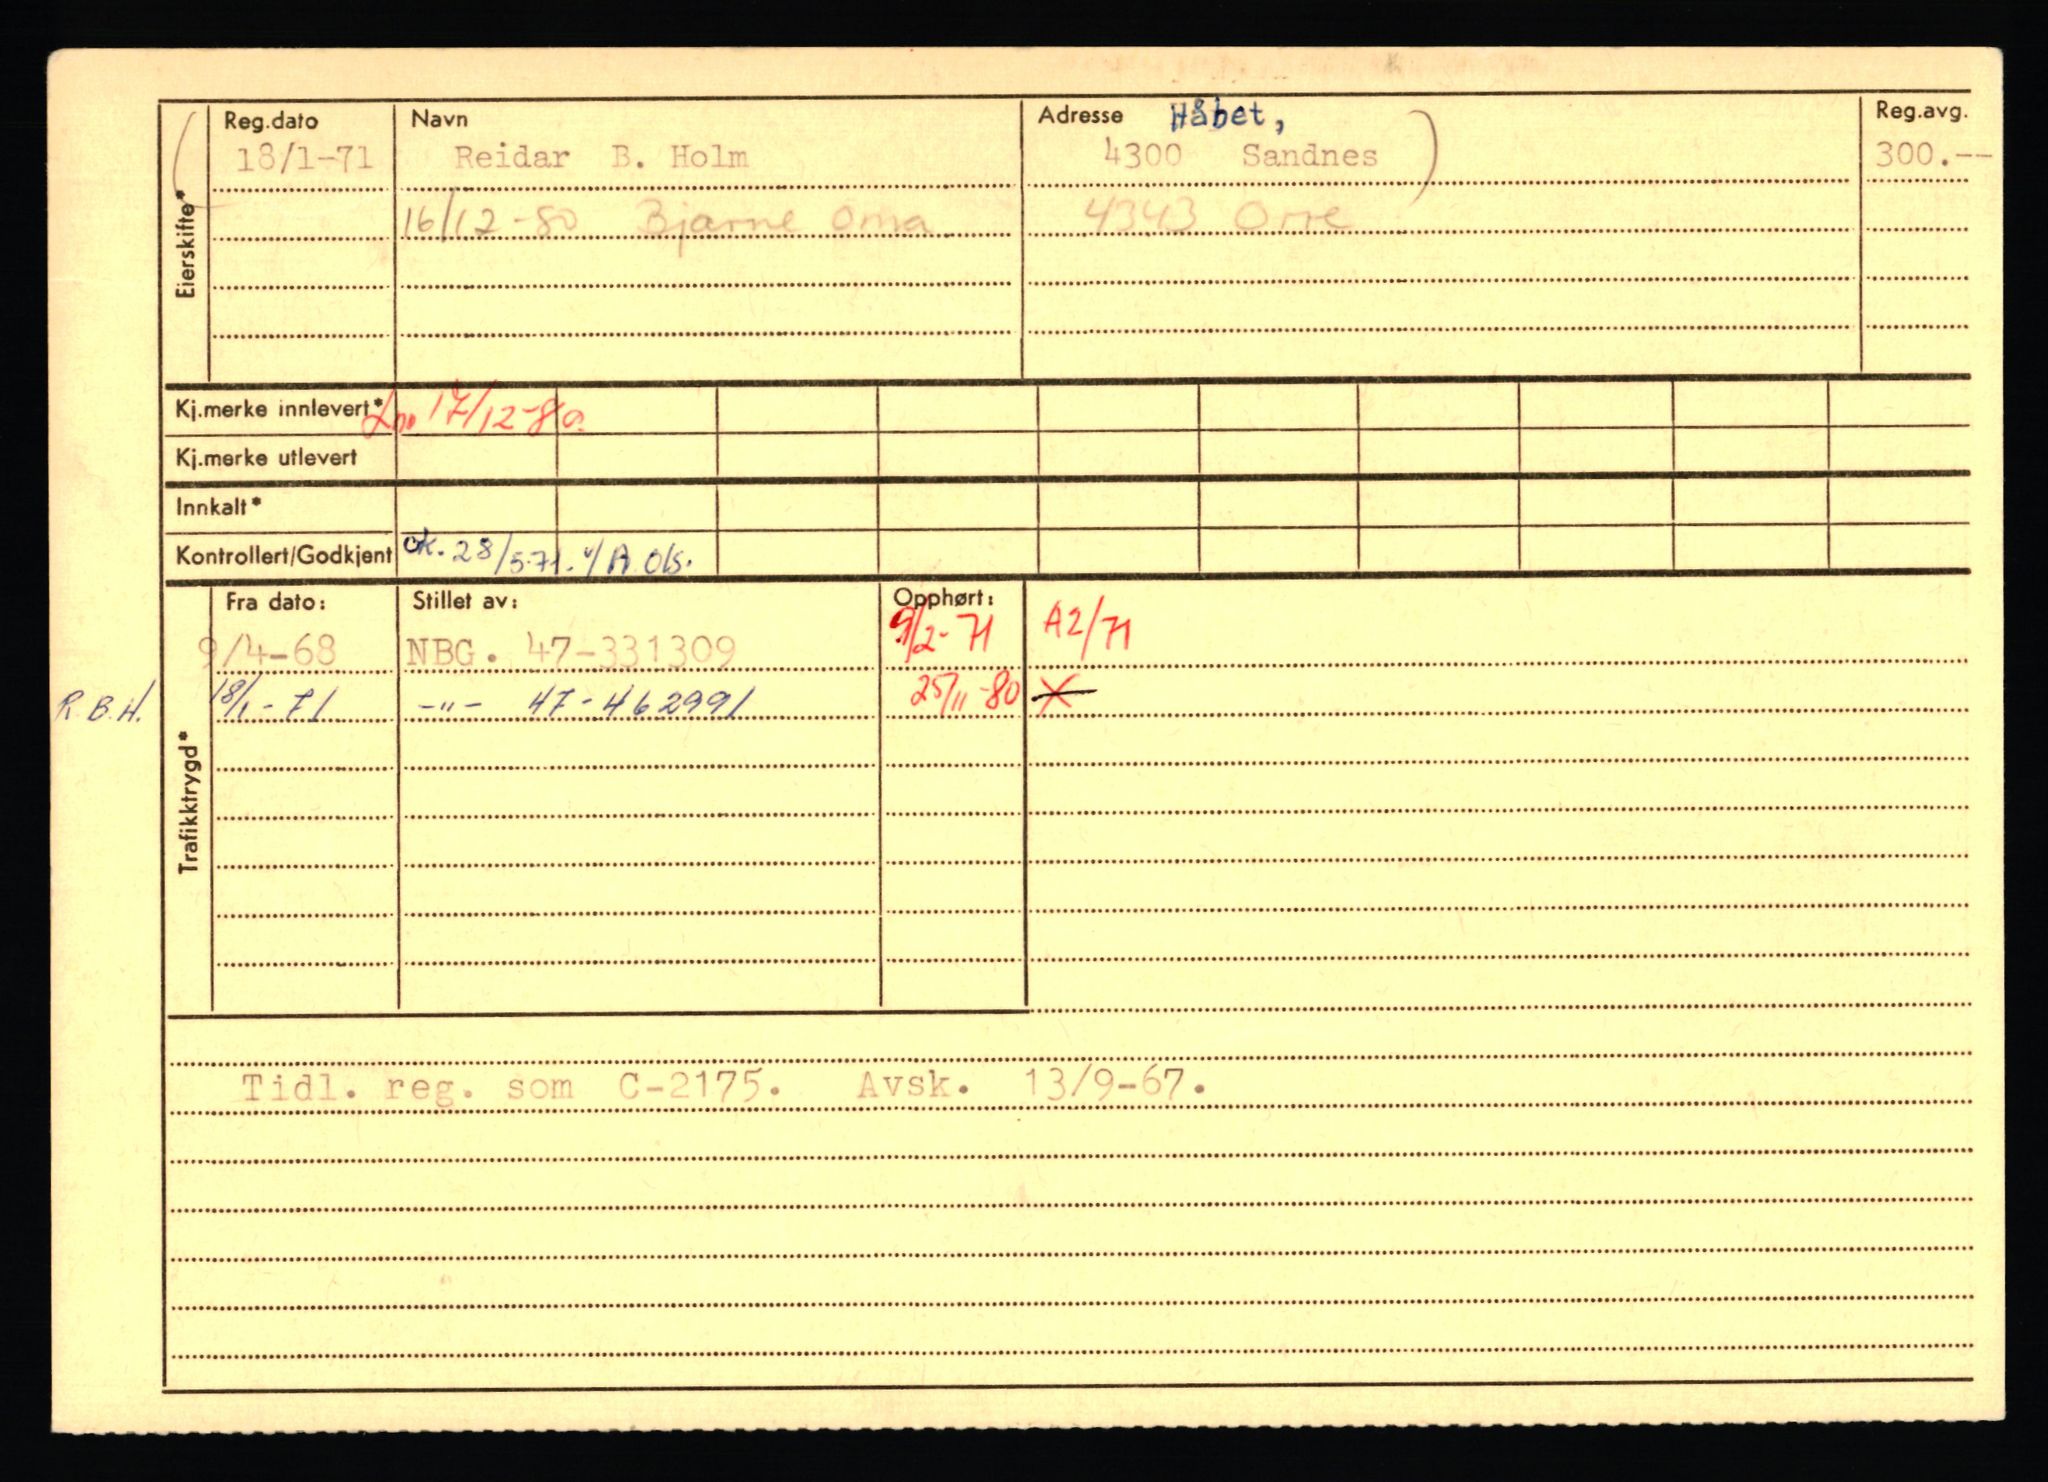 Eierskifte*
Reg.dato Navn Adresse Håbet, Reg.avg.
18/1-71 Reidar B. Holm 4300 Sandnes ) 300.--
16/12-80 Bjarne Oma 4343 Orre
Kj.merke innlevert* 17/12-80.
Kj.merke utlevert
Innkalt*
Kontrollert/Godkjent ok. 28/5-71. v/A. Ols.
Trafikktrygd*
Fra dato: Stillet av: Opphørt:
9/4-68 NBG. 47-331309 9/2-71 A2/71
R.B.H. 18/1-71 -"- 47-462991 25/11-80 X
Tidl. reg. som C-2175. Avsk. 13/9-67.